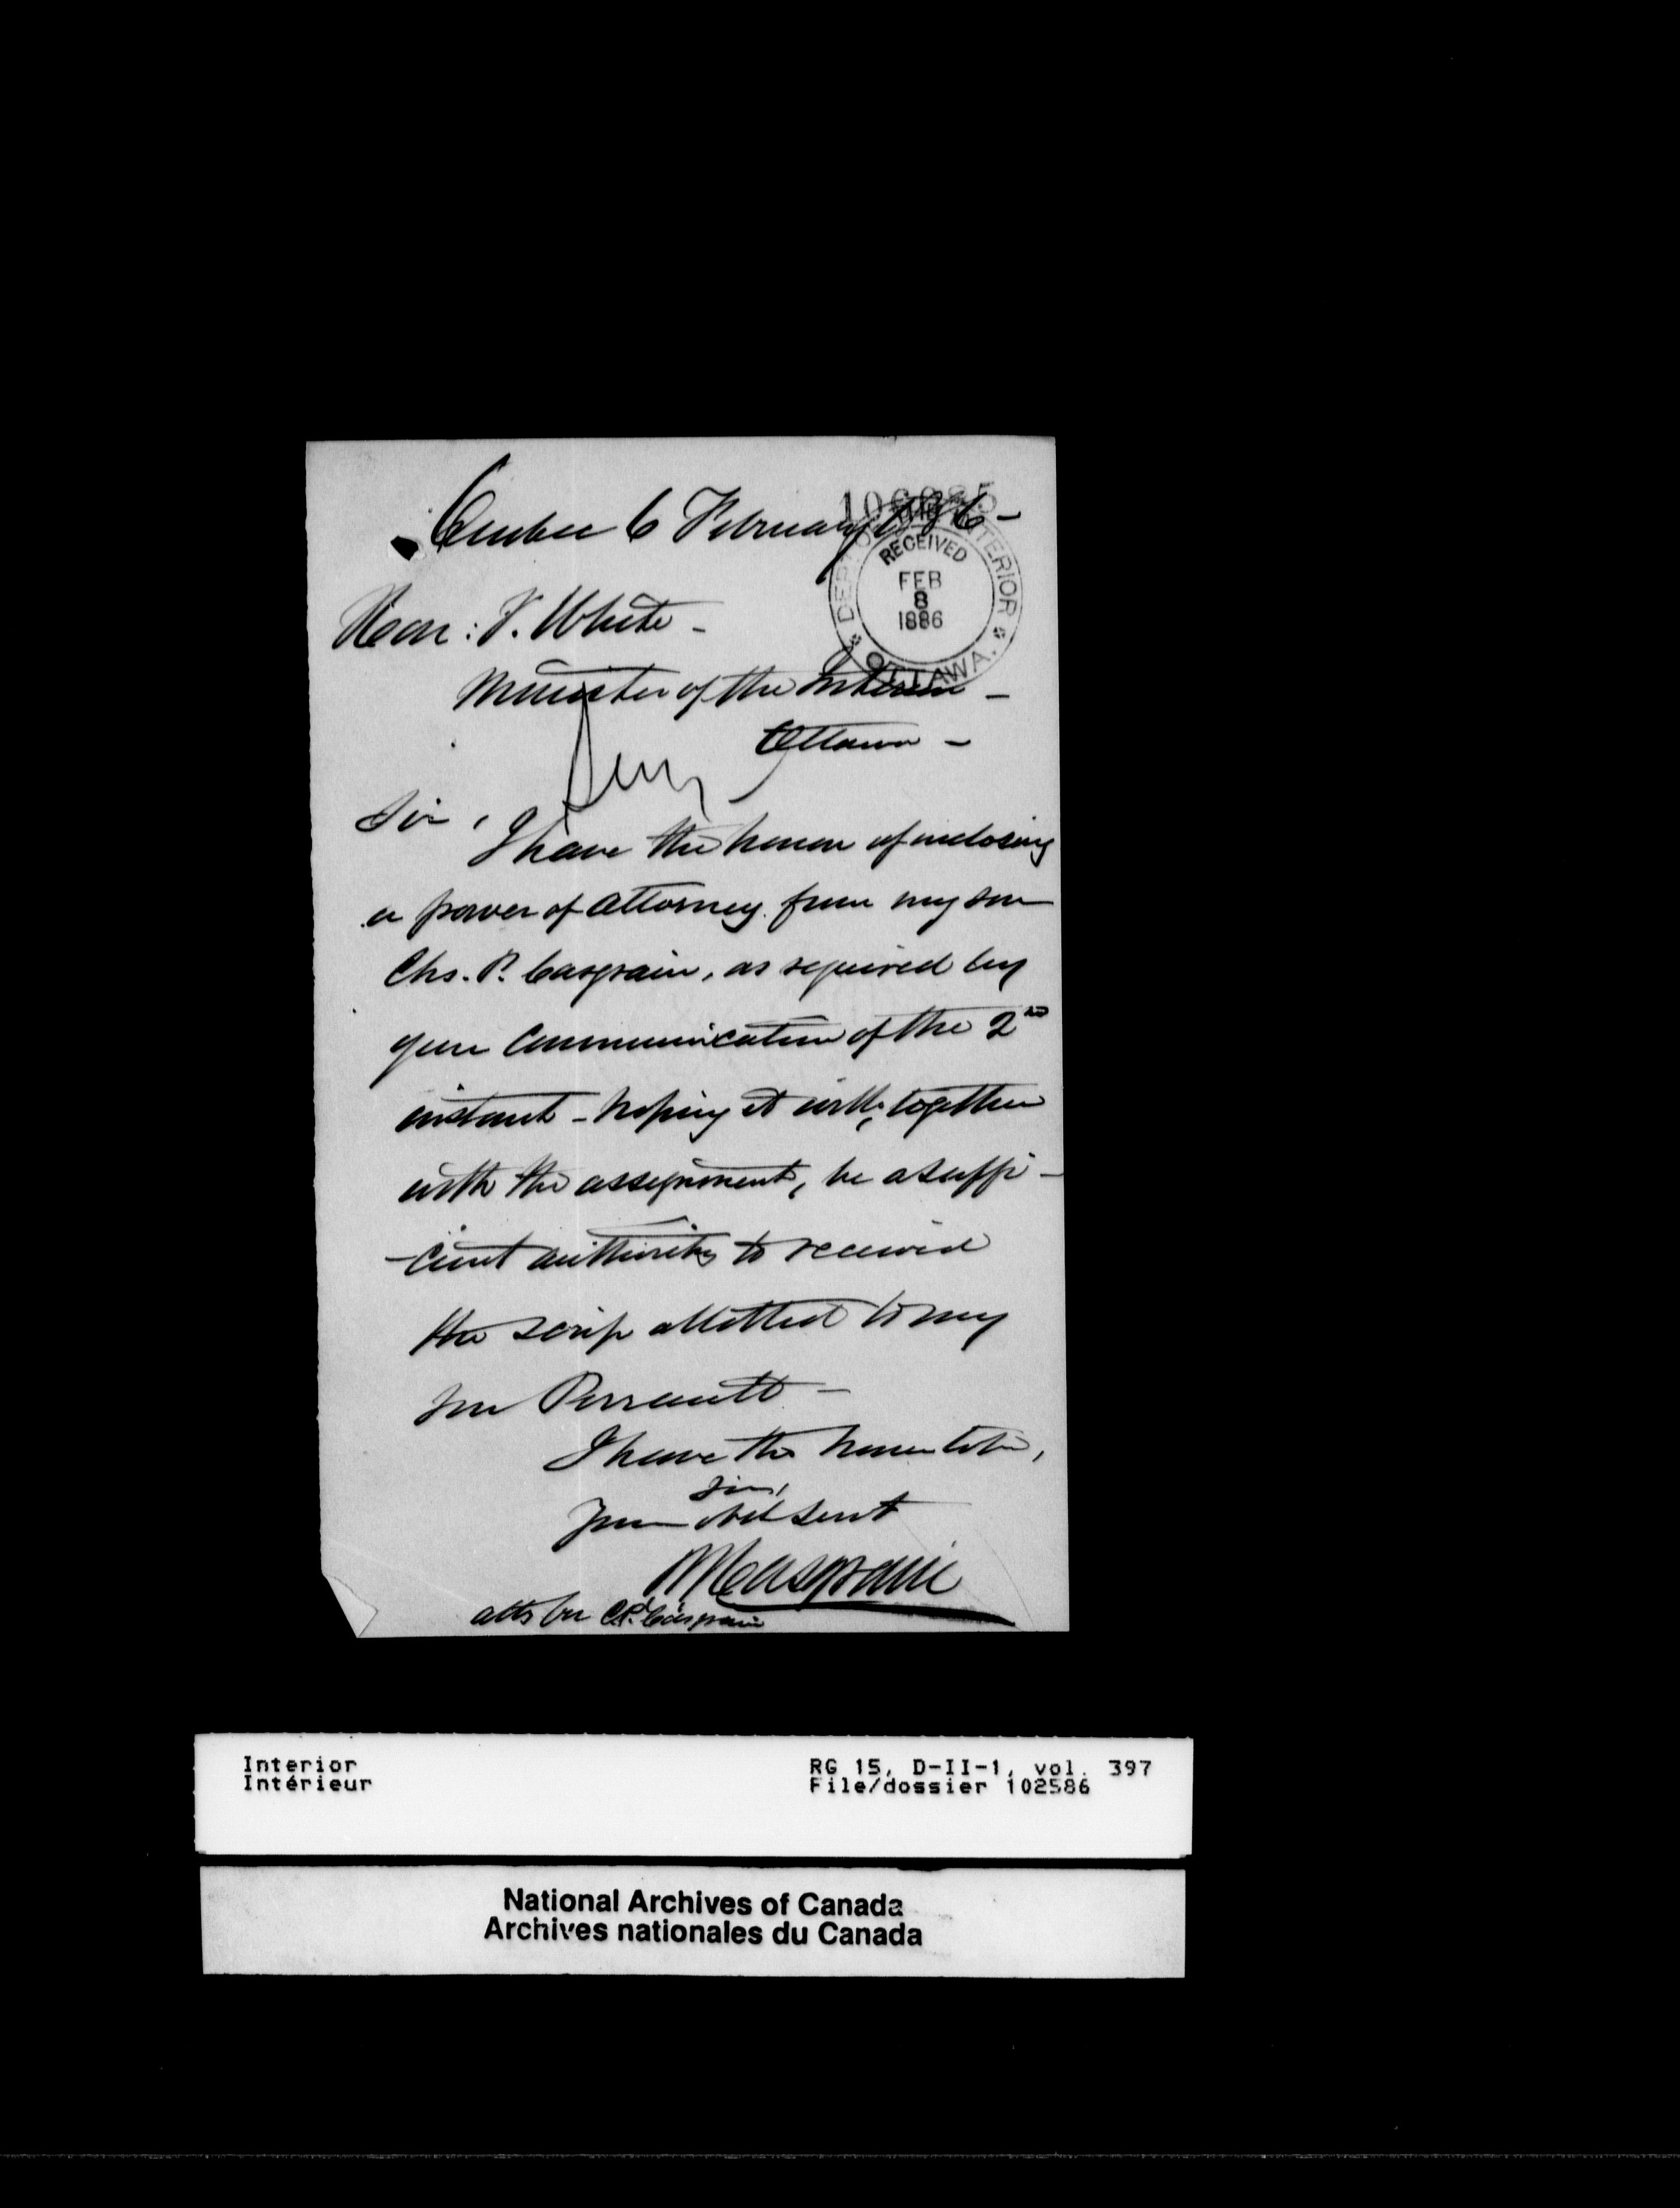 Quebec 6 February 1886 -
DEPT OF THE INTERIOR
RECEIVED
FEB
8
1886
OTTAWA.
Hon: T. White -
Minister of the Interior -
Ottawa -
Sir,
I have the honor of inclosing
a power of attorney from my son
Chs. P. Casgrain, as required by
your communication of the 2nd
instant - hoping it will, together
with the assignment, be a suffi-
-cient authority to received
the scrip allotted to my
son Perrault -
I have the honor to be,
Sir,
Your obt servt
Casgrain
atty for C.P. Casgrain
Interior
Intérieur
RG 15, D-II-1, vol. 397
File/dossier 102586
National Archives of Canada
Archives nationales du Canada